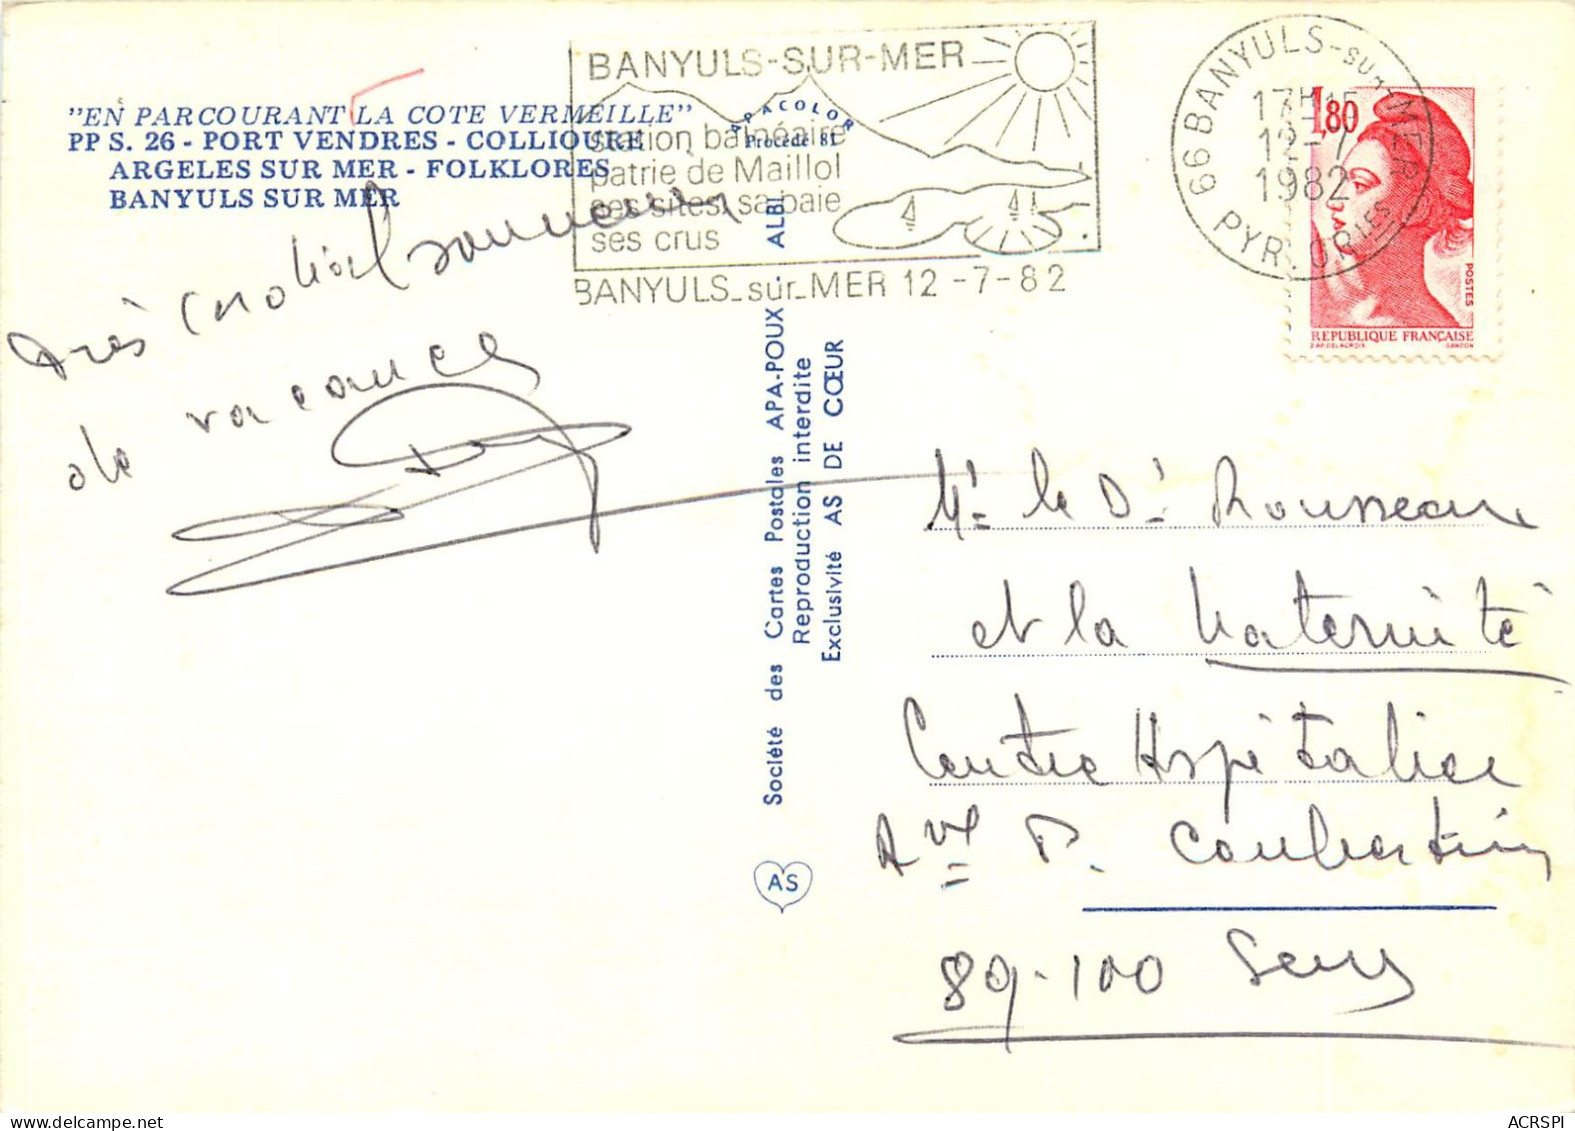 "EN PARCOURANT LA COTE VERMEILLE"
PP S. 26 - PORT VENDRES - COLLIOURE
ARGELES SUR MER - FOLKLORES
BANYULS SUR MER
APACOLOR
Procédé 81
BANYULS-SUR-MER
station balnéaire
patrie de Maillol
ses sites, sa baie
ses crus
BANYULS-sur-MER 12 -7-82
66 BANYULS-sur-MER
17H15
12-7
1982
PYR. ORIES
1,80
POSTES
REPUBLIQUE FRANÇAISE
D'AP. DELACROIX GANDON
Très cordial souvenir
de vacances
Société des Cartes Postales APA-POUX ALBI
Reproduction interdite
Exclusivité AS DE CŒUR
AS
Mr le Dr Rousseau
et la Maternité
Centre Hospitalier
Ave P. Coubertin
89-100 Sens
ACRSPI